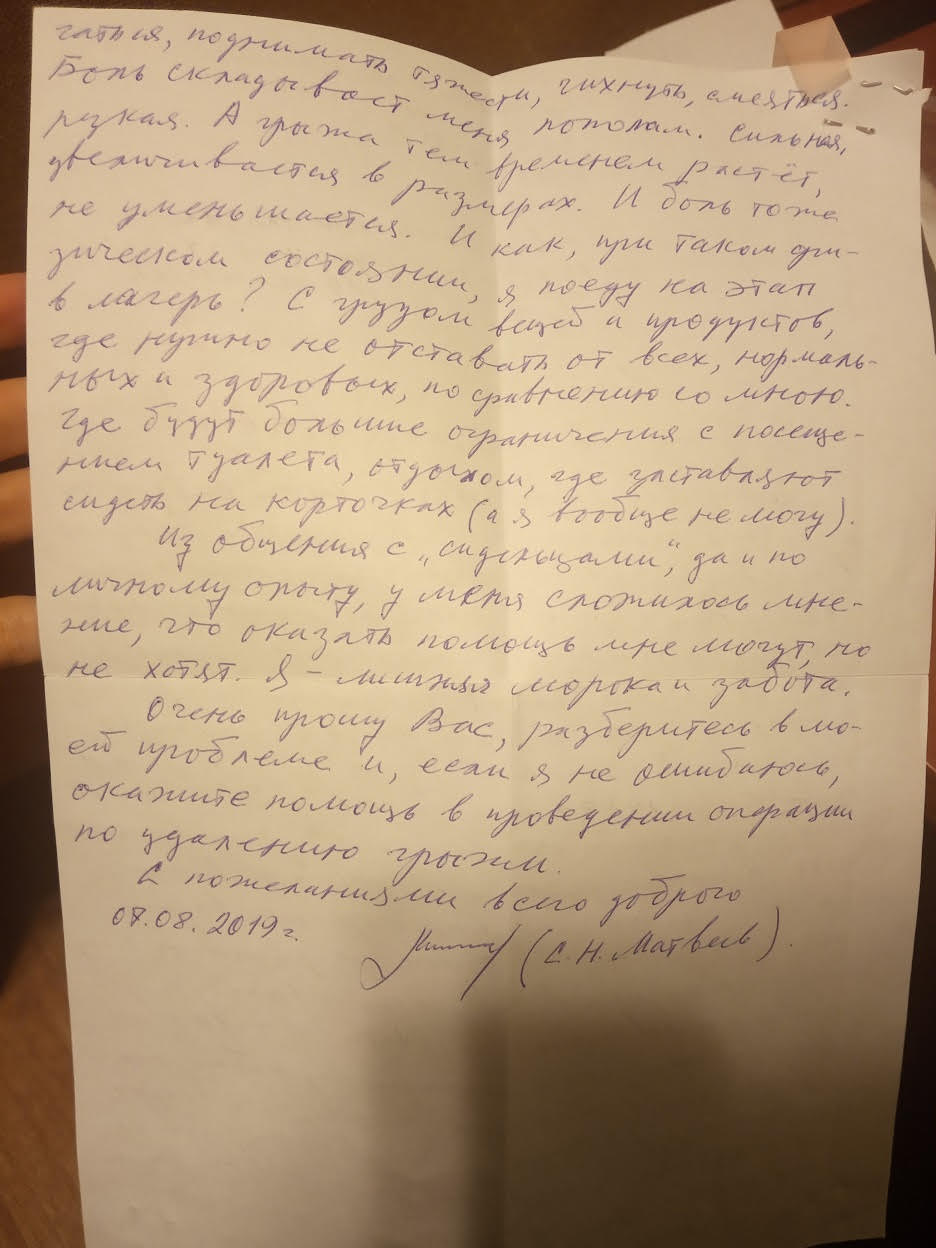 гаться, поднимать тяжести, чихнуть, смеяться.
Боль складывает меня пополам. Сильная,
резкая. А грыжа тем временем растёт,
увеличивается в размерах. И боль тоже
не уменьшается. И как, при таком фи-
зическом состоянии, я поеду на этап
в лагерь? С грузом вещей и продуктов,
где нужно не отставать от всех, нормаль-
ных и здоровых, по сравнению со мною.
Где будут большие ограничения с посеще-
нием туалета, отдыхом, где заставляют
сидеть на корточках (а я вообще не могу).
Из общения с „сидельцами“, да и по
личному опыту, у меня сложилось мне-
ние, что оказать помощь мне могут, но
не хотят. Я – лишняя морока и забота.
Очень прошу Вас, разберитесь в мо-
ей проблеме и, если я не ошибаюсь,
окажите помощь в проведении операции
по удалению грыжи.
С пожеланиями всего доброго
07.08.2019г.
(С.Н. Матвеев).